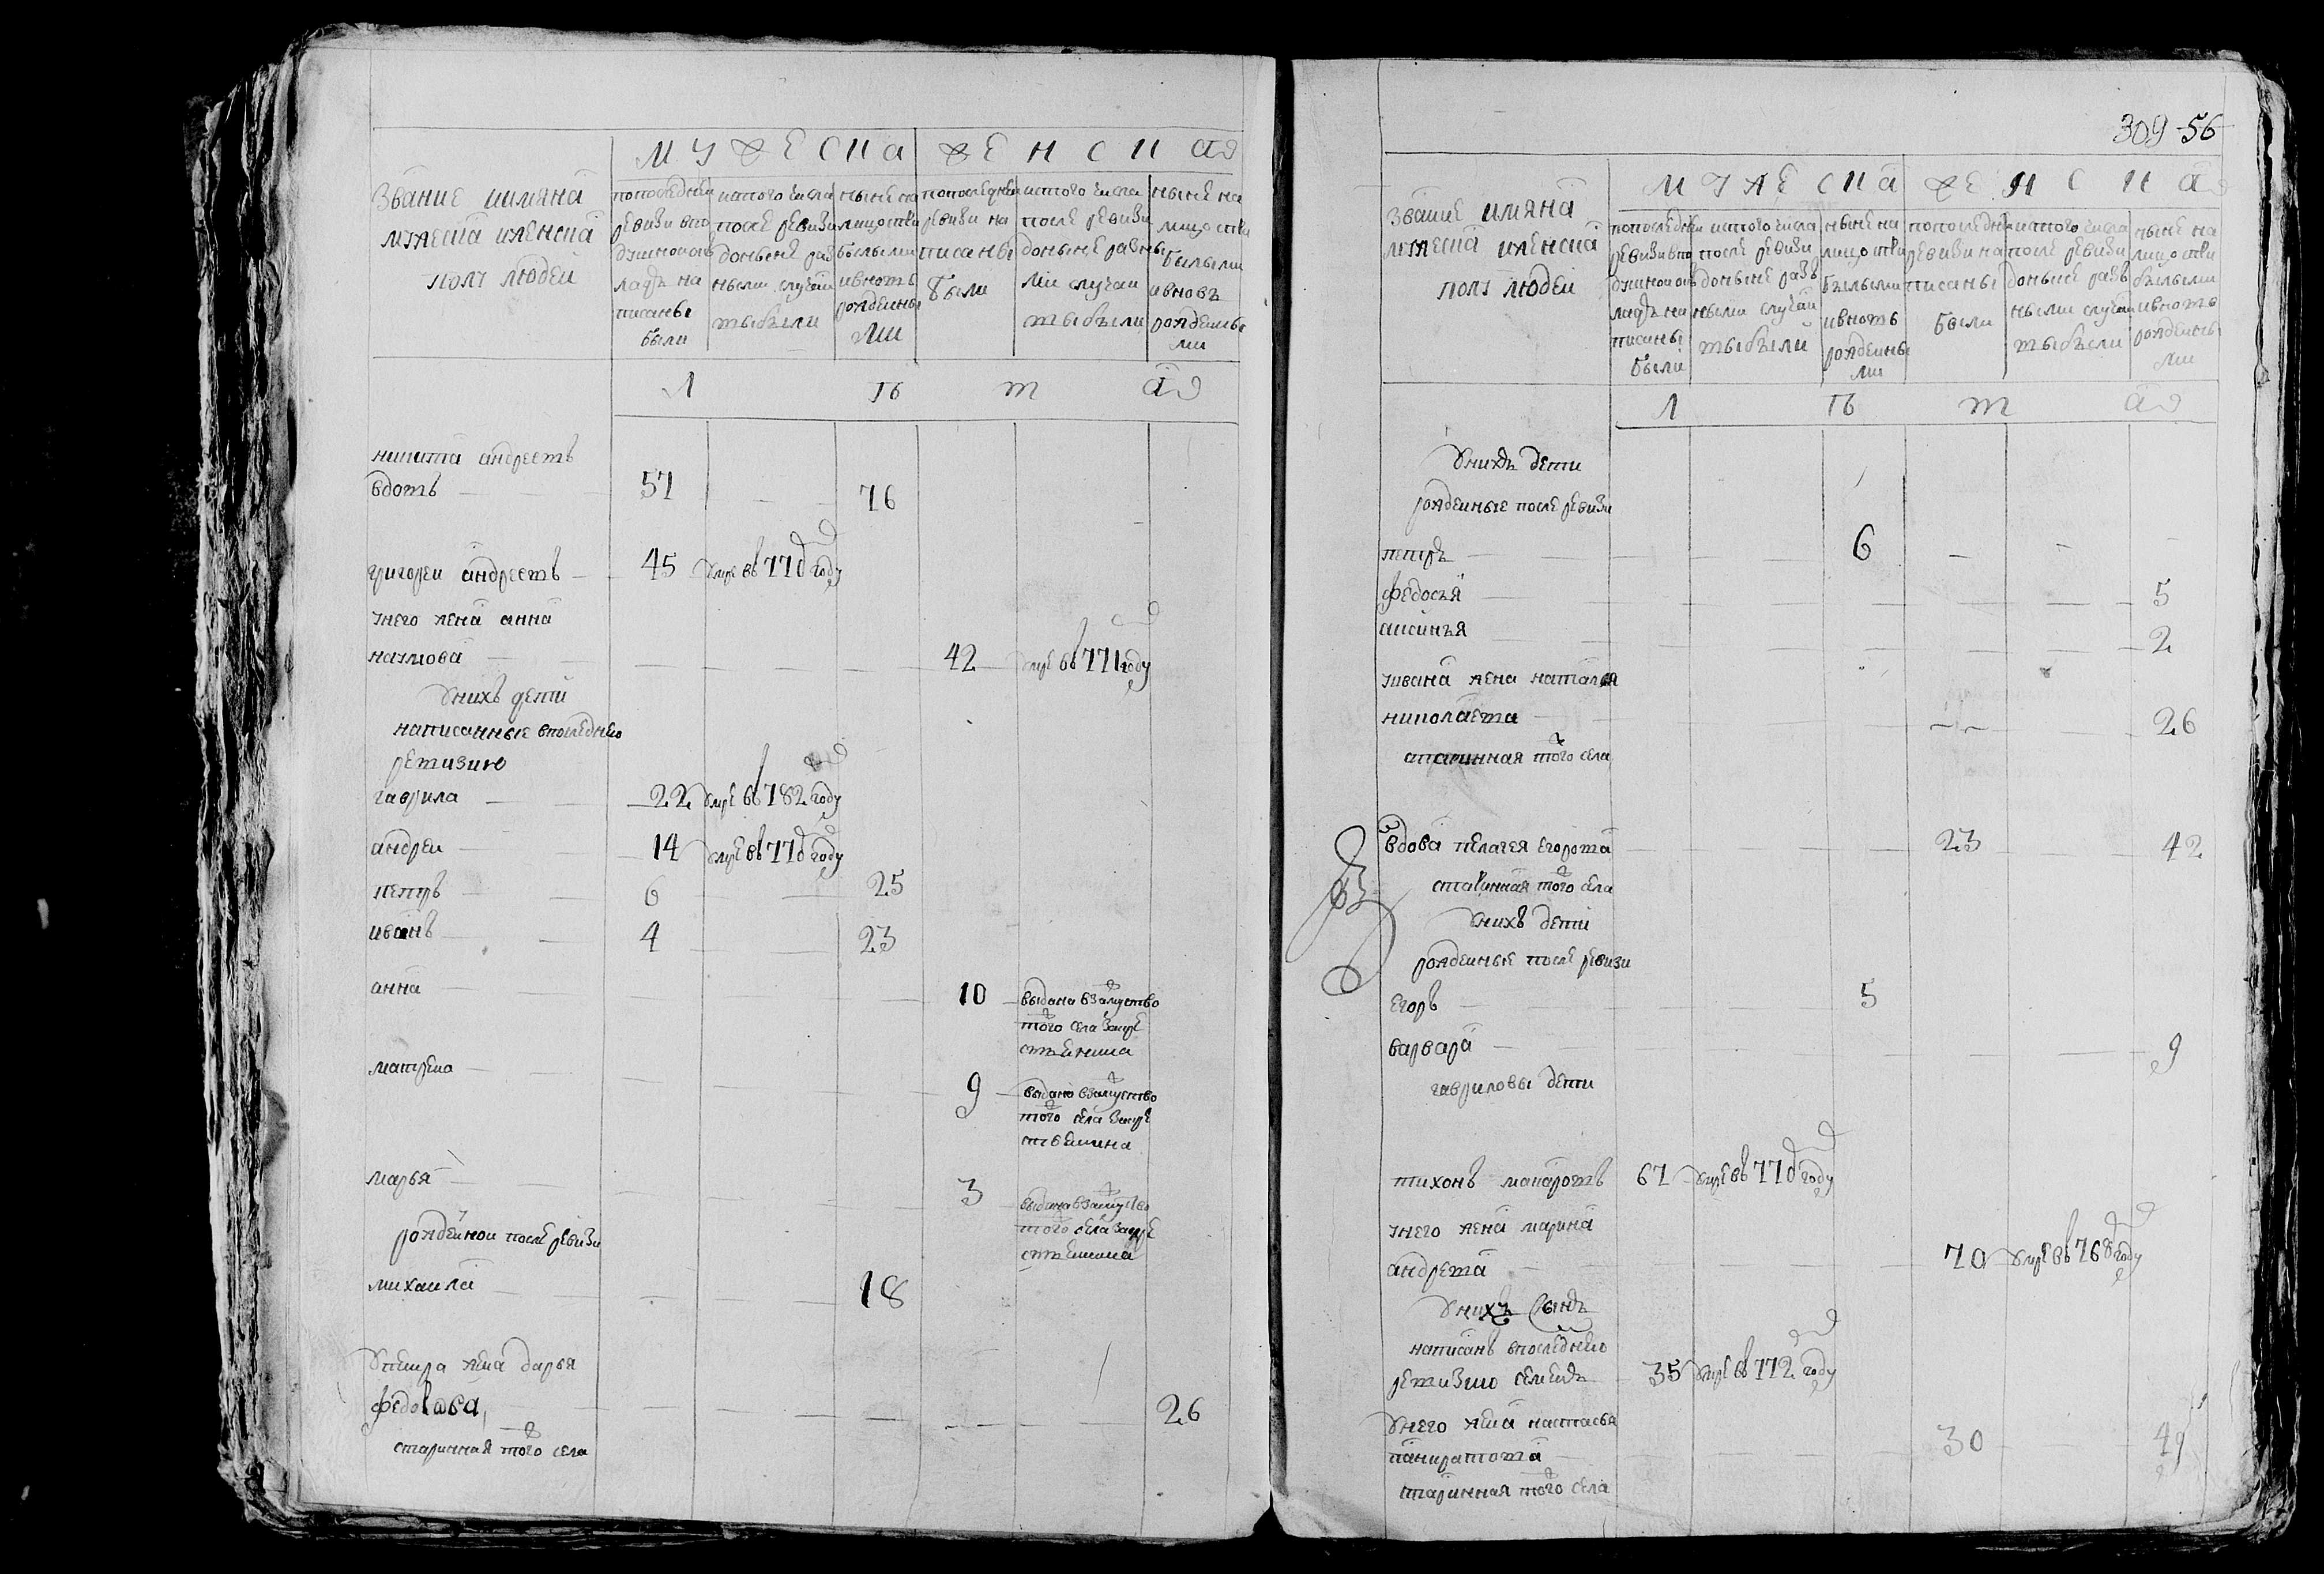 МУЖЕСКА ЖЕНСКА
Звание иимяна
мужеска иженска
полу людей
попоследней
ревизи впо
душномок
ладѣ на
писаны
были
истого числа
после ревизи
доныне раз
ными случаи
выбыли
ныне на
лицо ски
былыми
ивновь
рожденны
ми
попоследней
ревизи на
писаны
были
истого числа
после ревизи
доныне разны
ми случаи
выбыли
ныне на
лицо ски
былыми
ивновь
рожденны
ми
Л Ѣ Т А
никита андреевъ
вдовъ 57 76
григорей андреевъ 45 умре въ 770 году
унего жена анна
наумова 42 умре въ 771 году
Унихъ дети
написанные впоследнею
ревизию
гаврила 22 умре въ 782 году
андреи 14 умре въ 770 году
петръ 6 25
иванъ 4 23
анна 10 выдана взамужство
того села закре
стьенина
матрена 9 выдана взамужство
того села закре
стьенина
марья 3 выдана взамужство
того села закре
стьенина
рожденной после ревизи
михаила 18
Упетра жена дарья
федорова 26
старинная того села
309 56
МУЖЕСКА ЖЕНСКА
Звание имяна
мужеска иженска
полу людей
попоследней
ревизи впо
душномок
ладѣ на
писаны
были
истого числа
после ревизи
доныне раз
ными случаи
выбыли
ныне на
лицо ски
былыми
ивновь
рожденны
ми
попоследней
ревизи на
писаны
были
истого числа
после ревизи
доныне раз
ными случаи
выбыли
ныне на
лицо ски
былыми
ивновь
рожденны
ми
Л Ѣ Т А
Унихъ дети
рожденные после ревизи
петръ 6
федосья 5
аксинья 2
уивана жена наталья
николаева 26
старинная того села
вдова пелагея егорова 23 42
старинная того села
Унихъ дети
рожденные после ревизи
егоръ 5
варвара 9
гавриловы дети
тихонъ макаровъ 67 умре въ 770 году
унего жена марина
андрева 70 умре въ 768 году
Унихъ сынъ
написанъ впоследнею
ревизию семенъ 35 умре въ 772 году
Унего жена настасья
панкратова 30 49
старинная того села